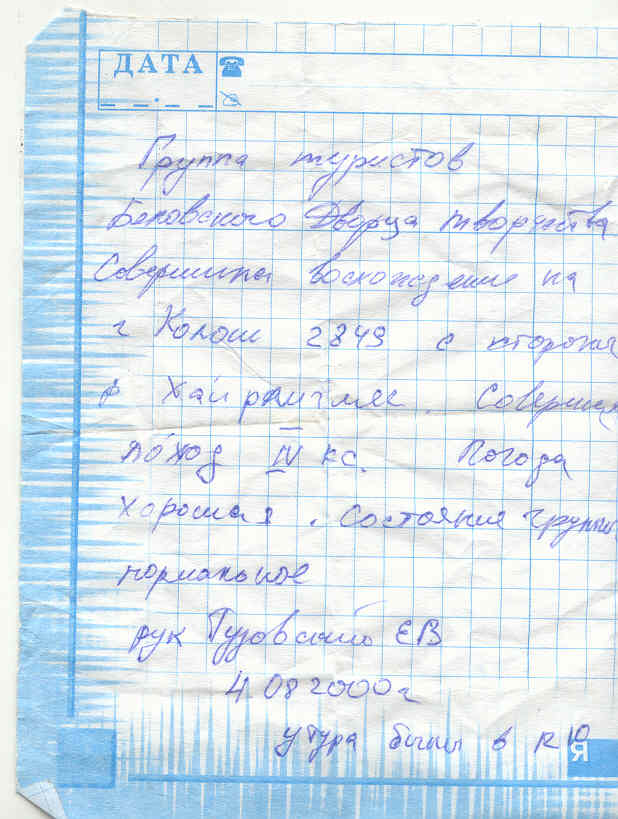 ДАТА
Группа туристов
Беловского Дворца творчества
Совершила восхождение на
г Колош 2849 с стороны
р Совершил
поход IV кс. Погода
Хорошая. Состояние группы
нормальное
рук ЕВ
4 08 2000 г
были в
Я